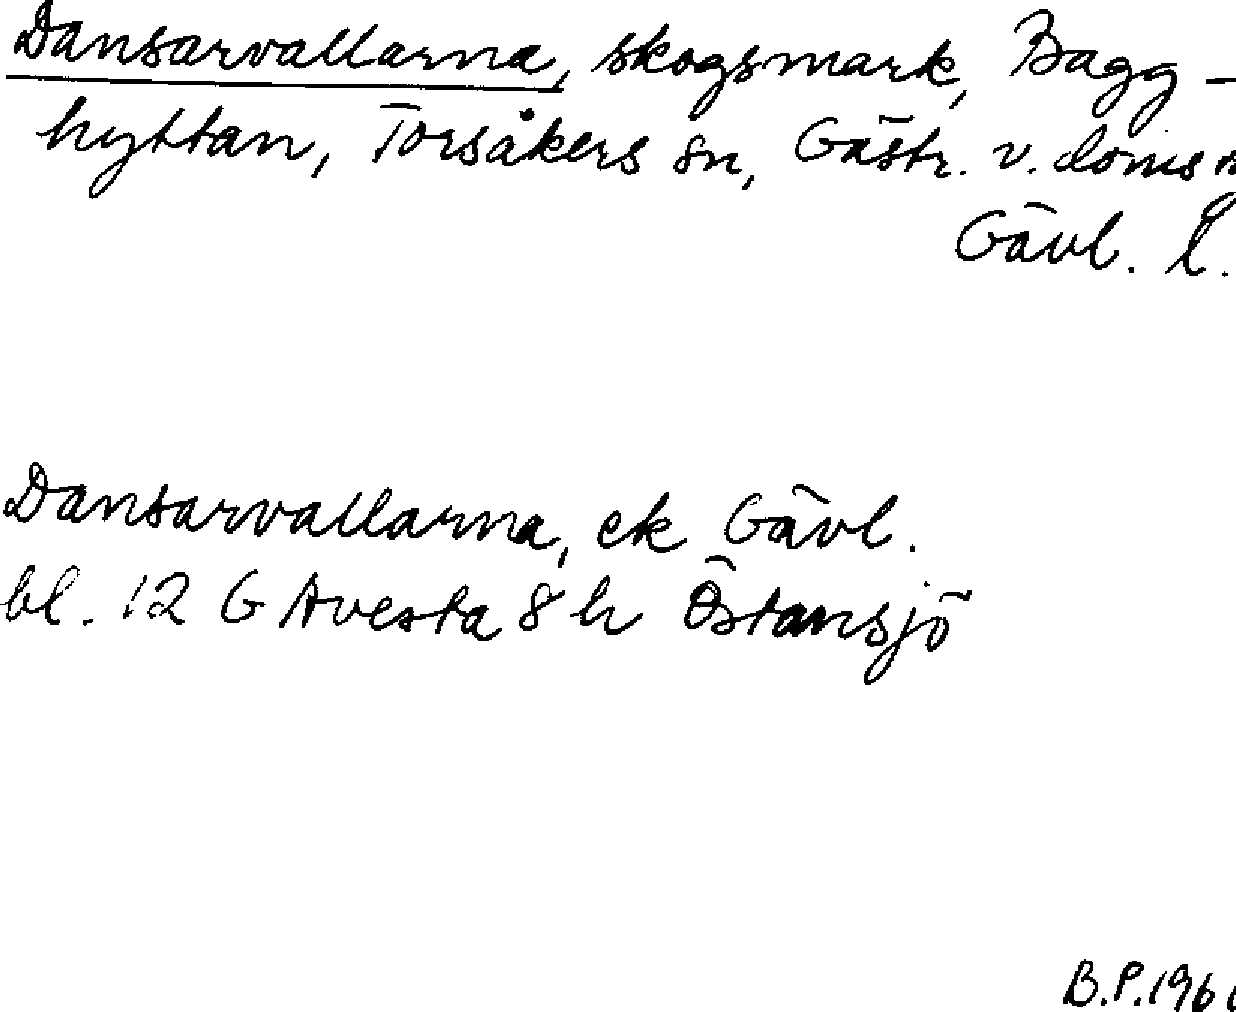 Dansarvallarna, skogsmark, Bagg-
hyttan, Torsåkers sn, Gästr. v. doms
Gävl. l.
Dansarvallarna, ek Gävl.
bl. 12 G Avesta 8 h Östansjö
B.P.196